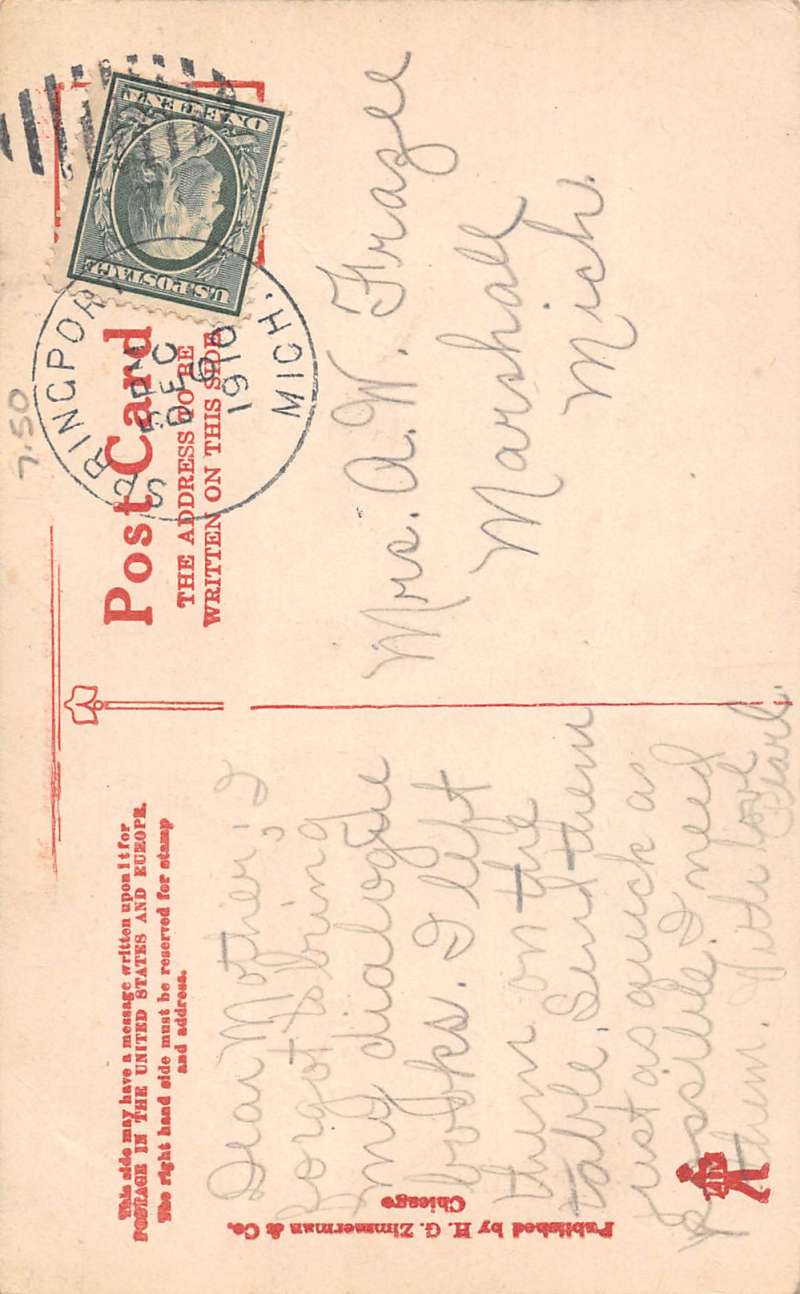 This side may have a message written upon it for
POSTAGE IN THE UNITED STATES AND EUROPE.
The right hand side must be reserved for stamp
and address.
Post Card
THE ADDRESS TO BE
WRITTEN ON THIS SIDE
U.S. POSTAGE
ONE CENT
SPRINGPORT
5 PM
DEC
6
1910
MICH.
7.50
Dear Mother; I
forgot to bring
my dialogue
books. I left
them on the
table. Send them
just as quick as
possible. I need
them. With love
Pearl.
Mrs. A. W. Frazee
Marshall
Mich.
Published by H. G. Zimmerman & Co.
Chicago
ZIM